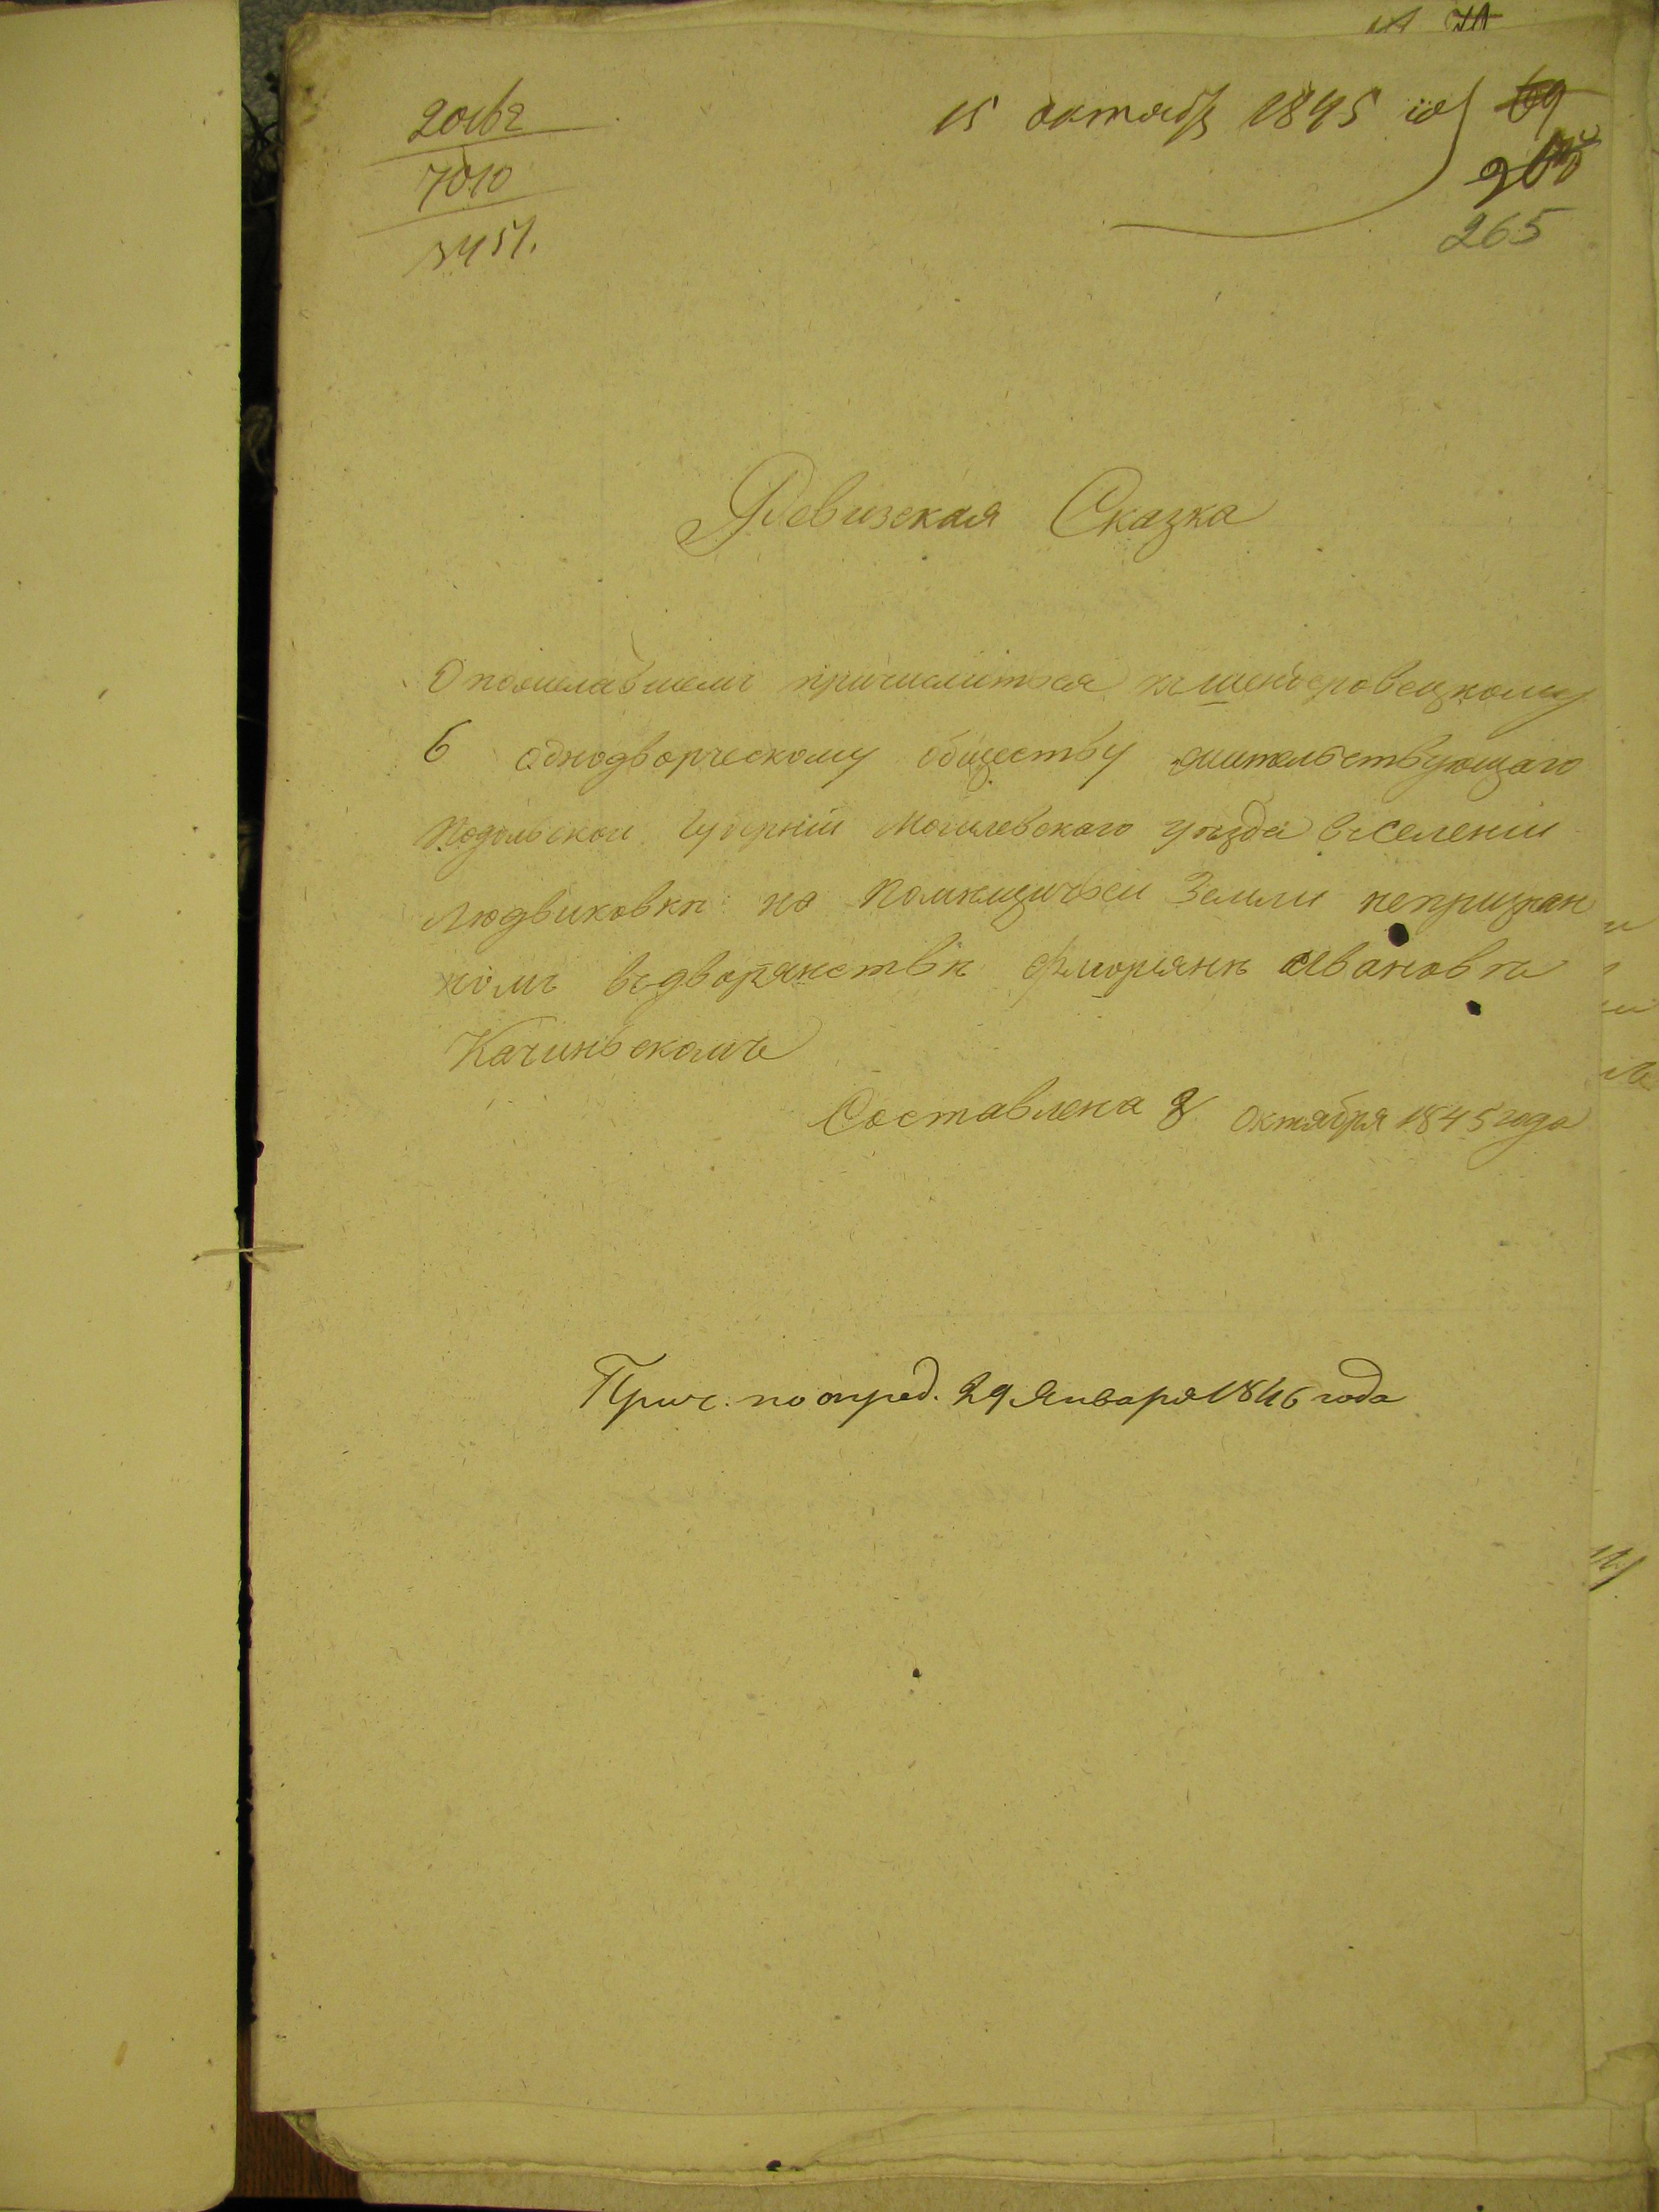 20162
7010
3451.
15 октября 1845 го
69
265
Ревизская Сказка
О пожелавшемъ причислится къ Шендеровецкому
6 однодворческому обществу жительствующаго
Подольской Губерніи Могилевскаго уѣзда въ селеніи
Людвиковкѣ на помѣщичьей Земли непризнан
номъ въ дворянствѣ Флоріянѣ Ивановѣ
Качиньскомъ
Составлена 8 Октября 1845 года
Прич. по опред. 29 Января 1846 года